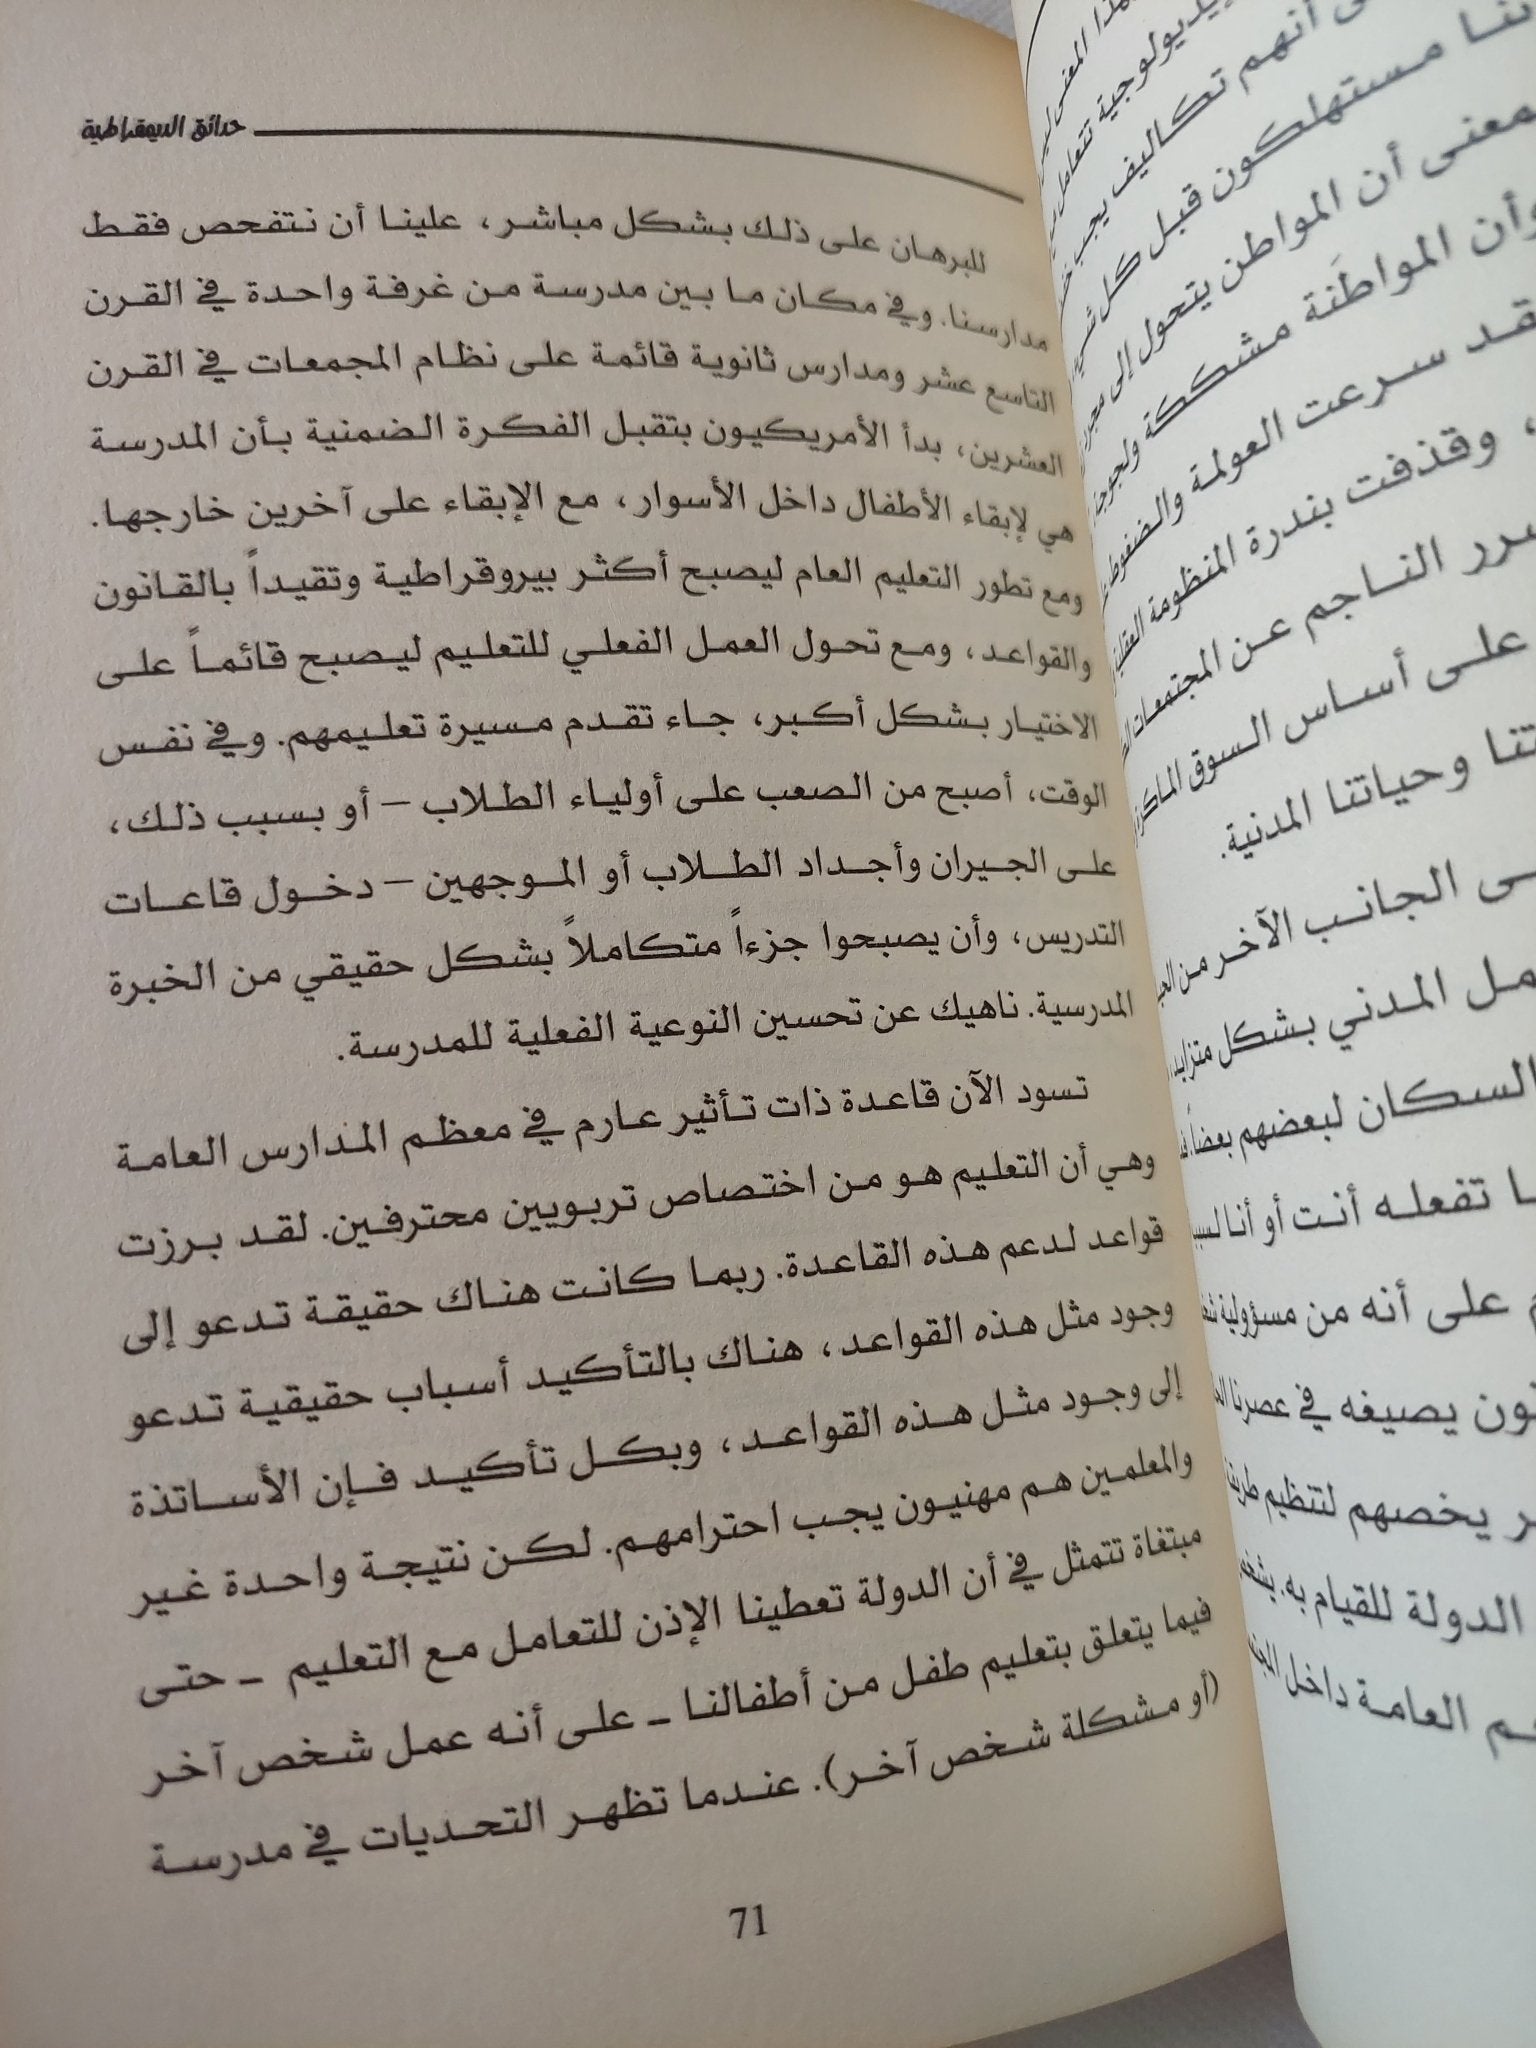 حدائق الديمقراطية
للبرهان على ذلك بشكل مباشر، علينا أن نتفحص فقط
مدارسنا. وفي مكان ما بين مدرسة من غرفة واحدة في القرن
التاسع عشر ومدارس ثانوية قائمة على نظام المجمعات في القرن
العشرين، بدأ الأمريكيون بتقبل الفكرة الضمنية بأن المدرسة
هي لإبقاء الأطفال داخل الأسوار، مع الإبقاء على آخرين خارجها.
ومع تطور التعليم العام ليصبح أكثر بيروقراطية وتقيداً بالقانون
والقواعد، ومع تحول العمل الفعلي للتعليم ليصبح قائماً على
الاختيار بشكل أكبر، جاء تقدم مسيرة تعليمهم. وفي نفس
الوقت، أصبح من الصعب على أولياء الطلاب – أو بسبب ذلك،
على الجيران وأجداد الطلاب أو الموجهين – دخول قاعات
التدريس، وأن يصبحوا جزءاً متكاملاً بشكل حقيقي من الخبرة
المدرسية. ناهيك عن تحسين النوعية الفعلية للمدرسة.
تسود الآن قاعدة ذات تأثير عارم في معظم المدارس العامة
وهي أن التعليم هو من اختصاص تربويين محترفين. لقد برزت
قواعد لدعم هذه القاعدة. ربما كانت هناك حقيقة تدعو إلى
وجود مثل هذه القواعد، هناك بالتأكيد أسباب حقيقية تدعو
إلى وجود مثل هذه القواعد، وبكل تأكيد فإن الأساتذة
والمعلمين هم مهنيون يجب احترامهم. لكن نتيجة واحدة غير
مبتغاة تتمثل في أن الدولة تعطينا الإذن للتعامل مع التعليم – حتى
فيما يتعلق بتعليم طفل من أطفالنا – على أنه عمل شخص آخر
(أو مشكلة شخص آخر). عندما تظهر التحديات في مدرسة
71
أنهم تكاليف يجب
مستهلكون قبل كل شيء
أن المواطن يتحول إلى مجرد
وأن المواطَنة مشككة ولجوجة
سرعت العولمة والضغوط
، وقذفت بندرة المنظومة
الناجم عن المجتمعات
على أساس السوق
وحياتنا المدنية.
الجانب الآخر من
المدني بشكل متزايد،
السكان لبعضهم بعضاً،
تفعله أنت أو أنا
على أنه من مسؤولية
يصيغه في عصرنا
يخصهم لتنظيم
الدولة للقيام به.
العامة داخل